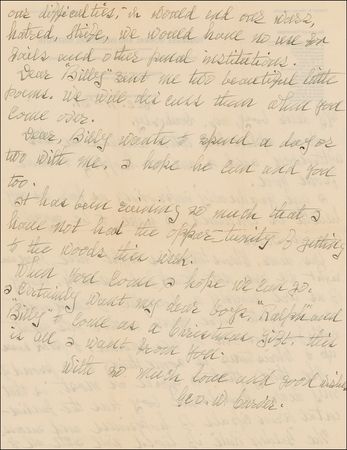 our difficulties, it would end our wars,
hatred, strife, we would have no use for
jails and other penal institutions.
"Dear Billy" sent me two beautiful little
poems. We will discuss them when you
come over.
Dear, Billy wants to spend a day or
two with me. I hope he can and you
too.
It has been raining so much that I
have not had the opportunity of getting
to the woods this week.
When you come I hope we can go.
I certainly want my dear boys, "Ralph" and
"Billy" to come as a Christmas gift. this
is all I want from you.
With so much love and good wishes
Geo. W. Carver.